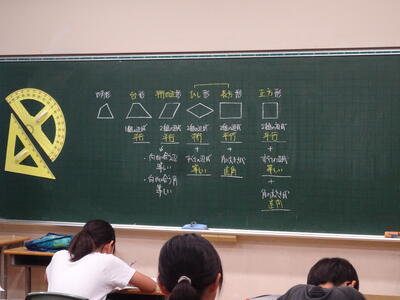 四角形
台形
平行四辺形
ひし形
長方形
正方形
1組の辺が
平行
2組の辺が
平行
2組の辺が
平行
2組の辺が
平行
2組の辺が
平行
・向かい合う辺
等しい
・向かい合う角
等しい
+
すべての辺が
等しい
+
角の大きさが
直角
+
すべての辺が
等しい
+
角の大きさが
直角